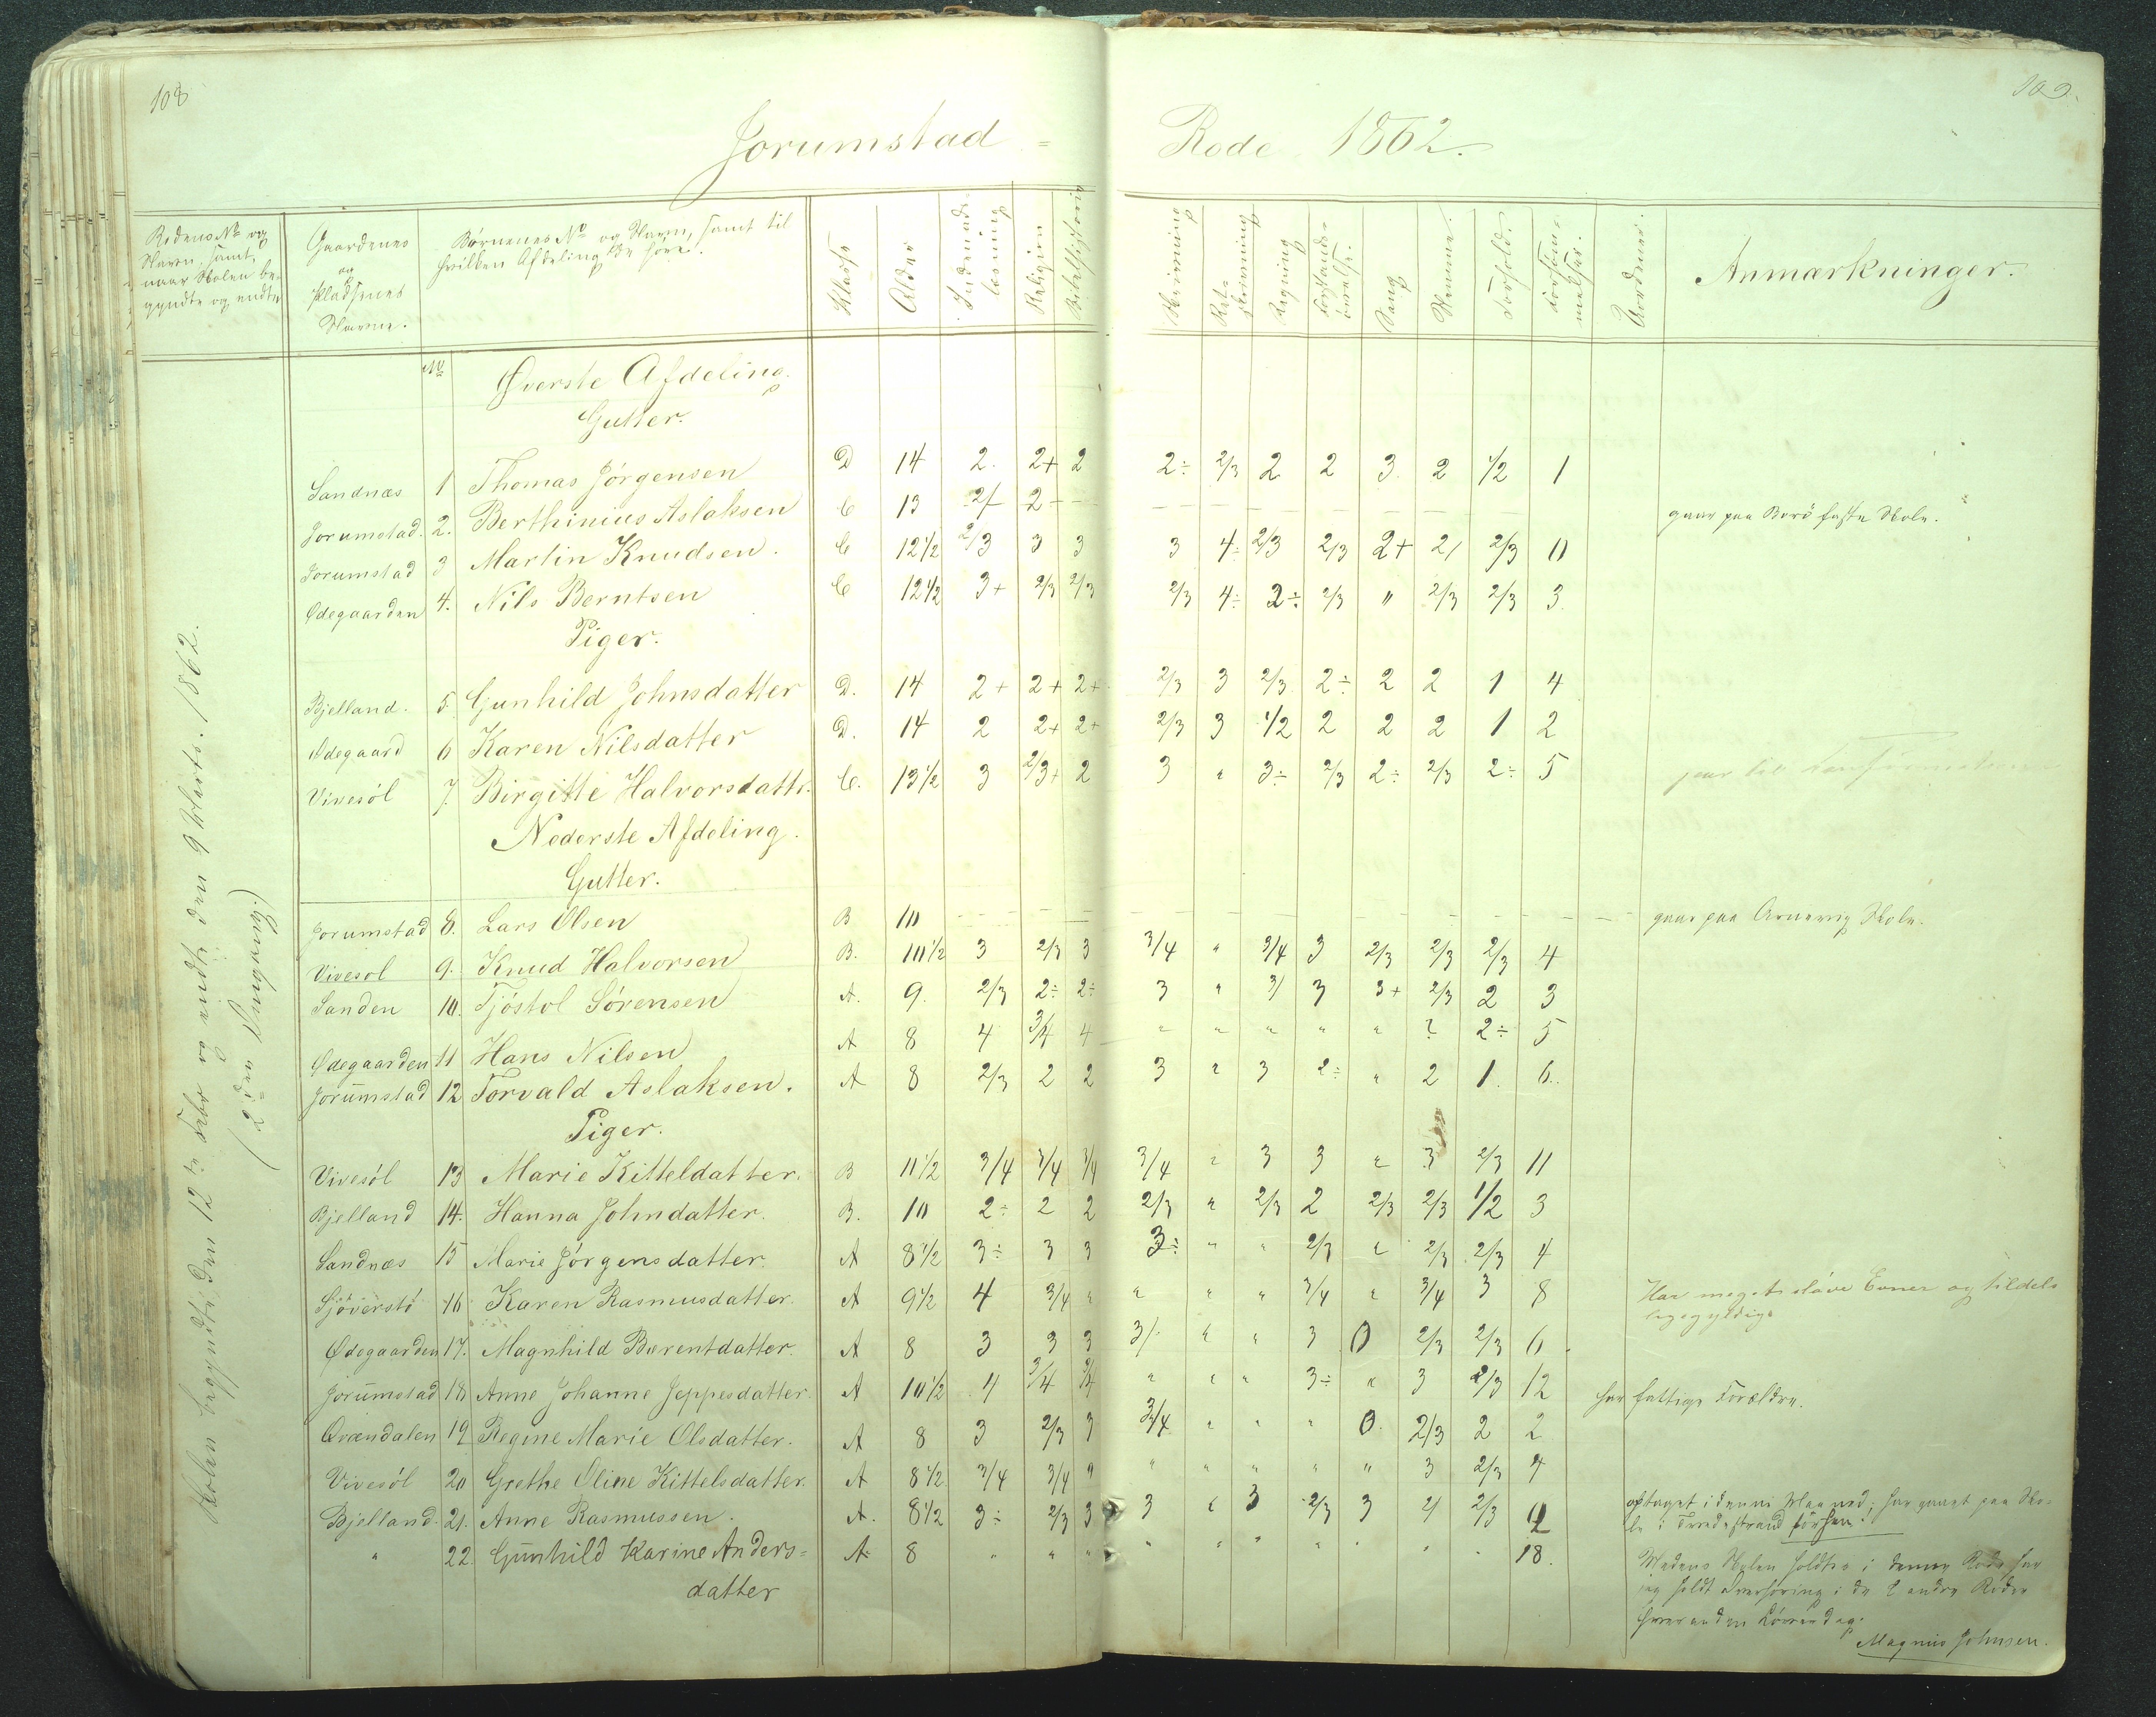 108
109.
Jorumstad = Rode 1862.
Rodens No og
Navn, samt,
naar Skolen be-
gyndte og endte
Gaardenes
og
Pladsenes
Navne.
Børnenes No og Navn, samt til
hvilken Afdeling de høre.
Klasse
Alder
Indenads-
læsning
Religion
Bibelhistorie
Skrivning
Ret-
skrivning
Regning
Forstands-
øvelse.
Sang
Stemme.
Forhold.
Forsøm-
melser.
Anmærkninger.
Skolen begyndte den 12te Febr og endte den 9 Marts. 1862.
(2den Omgang.)
No Øverste Afdeling.
Gutter.
Sandnæs 1 Thomas Jørgensen D 14 2. 2+ 2 2÷ 2/3 2 2 3 2 1/2 1
Jorumstad. 2. Berthinius Aslaksen C 13 2/ 2 - - - - - - - - - - gaar paa Borø faste Skole.
Jorumstad 3 Martin Knudsen. C 12 1/2 2/3 3 3 3 4÷ 2/3 2/3 2+ 2/ 2/3 11
Ødegaarden 4. Nils Berntsen C 12 1/2 3+ 2/3 2/3 2/3 4÷ 2÷ 2/3 " 2/3 2/3 3.
Piger.
Bjelland. 5 Gunhild Johnsdatter D. 14 2+ 2+ 2+ 2/3 3 2/3 2÷ 2 2 1 4
Ødegaard 6 Karen Nilsdatter D. 14 2 2+ 2+ 2/3 3 1/2 2 2 2 1 2
Vivesøl 7. Birgitte Halvorsdattr. C. 13 1/2 3 2/3+ 2 3 " 3÷ 2/3 2÷ 2/3 2÷ 5
Nederste Afdeling.
Gutter.
Jorumstad 8. Lars Olsen B 10 - - - - - - - - - - - gaar paa Arnevig Skole.
Vivesøl 9. Knud Halvorsen B. 10 1/2 3 2/3 3 3/4 " 3/4 3 2/3 2/3 2/3 4
Sanden 10. Tjøstol Sørensen A. 9. 2/3 2÷ 2÷ 3 " 3/ 3 3+ 2/3 2 3
Ødegaarden 11 Hans Nilsen A 8 4 3/4 4 " " " " " ? 2÷ 5
Jorumstad 12 Torvald Aslaksen. A 8 2/3 2 2 3 " 3 2÷ " 2 1. 6.
Piger.
Vivesøl 13 Marie Kitteldatter. B 11 1/2 3/4 3/4 3/4 3/4 " 3 3 " 3 2/3 11
Bjelland 14. Hanna Johndatter. B. 10 2÷ 2 2 2/3 " 2/3 2 2/3 2/3 1/2 3
Sandnæs 15 Marie Jørgensdatter. A 8 1/2 3÷ 3 3 3÷ " " 2/3 " 2/3 2/3 4
Sjøverstø 16 Karen Rasmusdatter. A 9 1/2 4 3/4 " " " " 3/4 " 3/4 3 8 Har meget sløve Evner og tildels
ligegyldig.
Ødegaarden 17. Magnhild Bærentdatter. A 8 3 3 3 3/. " " 3 0 2/3 2/3 6
Jorumstad 18 Anne Johanne Jeppesdatter A 10 1/2 4 3/4 3/4 " " " 3÷ " 3 2/3 12 har fattige Forældre.
Qvændalen 19 Regine Marie Olsdatter. A 8 3 2/3 3 3/4 " " " 0. 2/3 2 2
Vivesøl 20 Grethe Oline Kittelsdatter. A 8 1/2 3/4 3/4 " " " " " " 3 2/3 4
Bjelland. 21. Anne Rasmussen. A. 8 1/2 3÷ 2/3 3 3 " 3 2/3 3 2/ 2/3 4 optaget i denne Maaned; har gaaet paa Sko-
le i Tvedestrand førhen.
" 22 Gunhild Karine Anders= A. 8 " " " " " " " " " " 18.
datter
Medens Skolen holdtes i denne Rode har
jeg holdt Overhøring i de 2 andre Roder
hveranden Løverdag.
Magnus Johnsen.